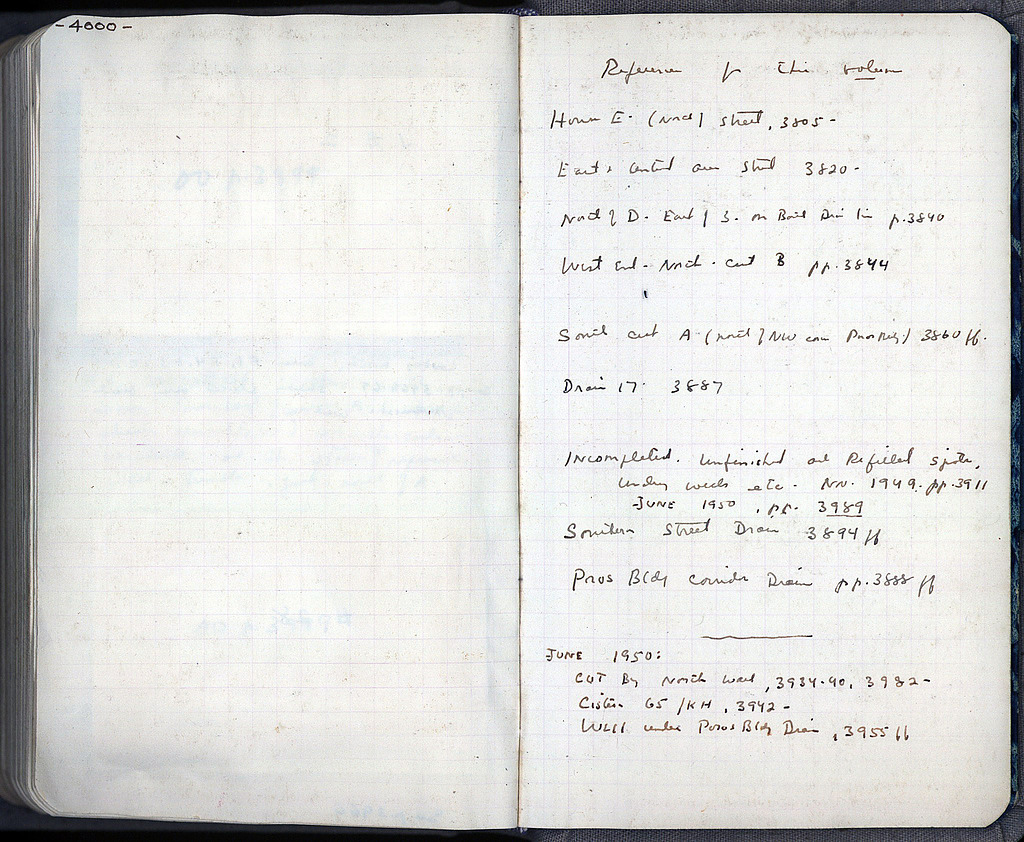 -4000-
References for this volume
House E. (North) Street, 3805-
East & central area Street 3820-
North of D. East of 3. on Drain line p.3840
West end - North - cut B pp.3844
South cut A (north of NW corner Poros Bldg) 3860 ff.
Drain 17. 3887
Incompleted. Unfinished and Refilled spots,
under weeds etc. Nov. 1949. pp.3911
JUNE 1950, pp. 3989
Southern Street Drain 3894 ff
Poros Bldg Corridor Drain pp.3888 ff
JUNE 1950:
CUT By North Wall, 3934-40, 3982-
Cistern 65/KH, 3942-
Well under Poros Bldg Drain, 3955 ff